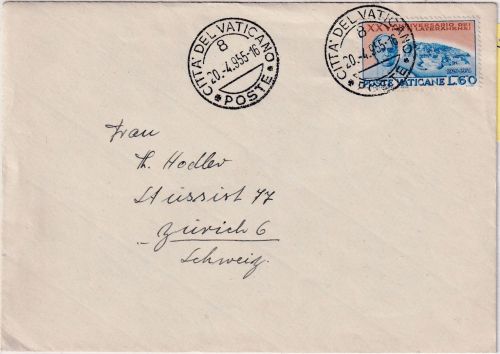 CITTA' DEL VATICANO
8
20.-4.955-16
* POSTE *
CITTA' DEL VATICANO
8
20.-4.955-16
* POSTE *
ANNIVERSARIO DEI
LATERANENSI
POSTE VATICANE L.60
Frau
Th. Hodler
17
Zürich 6
Schweiz.